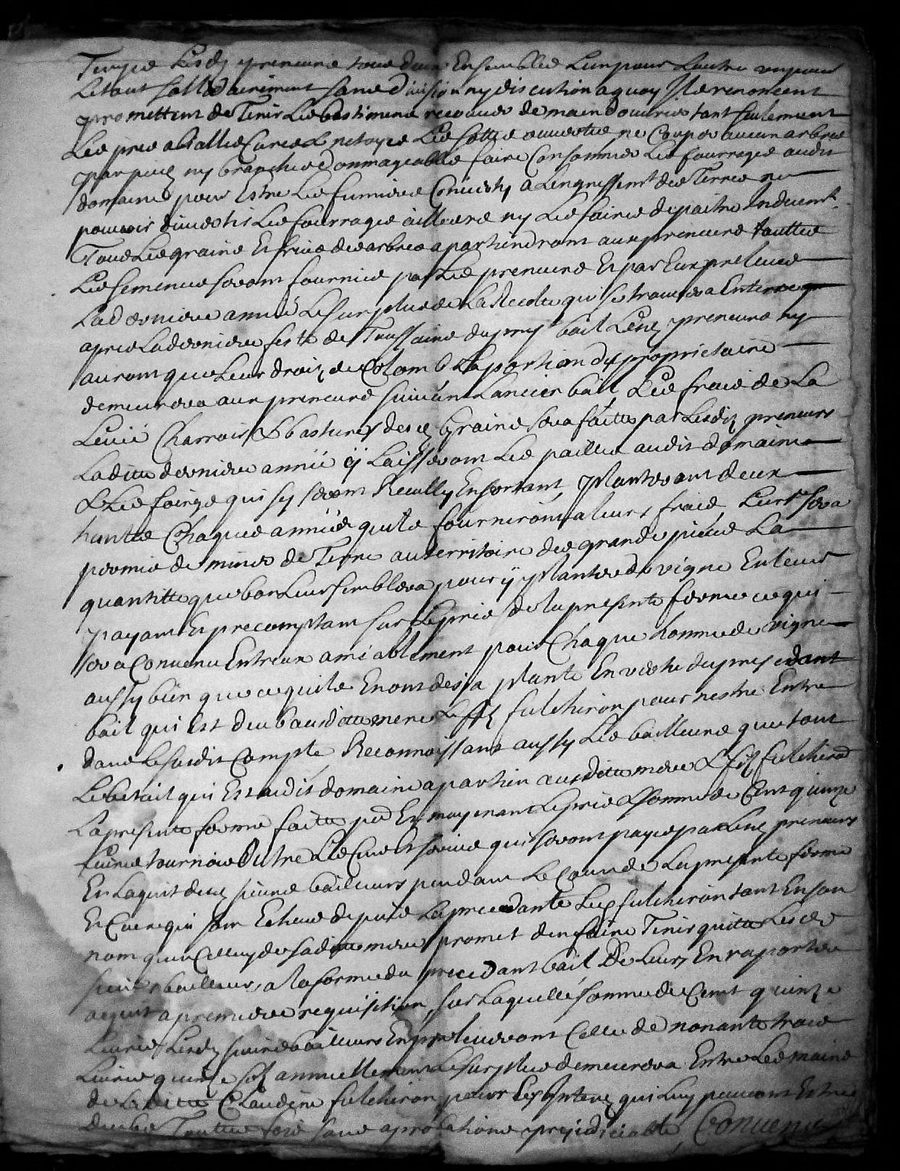 preneurs tous deux Ensemble L'un pour L'autre
sollidairement sans division ny discution a quoy Ils renoncent
promettent de Tenir Les bastiments recouvers de main douvrier tant seulement
Les prés Les netoyer Les ouvertes ne Couper aucun arbre
par pied ny branches domageable faire Consommer Les fourrages audit
domaine pour Estre Les fumiers Convertis a Lengressement des Terres ne
pouvoir divertir Les fourrages ailleurs ny Les faire depaitre Induement
Tous Les graine Et fruis des arbres apartiendront aux preneurs touttes
Les Semences seront fournies par Les preneurs Et par Eux prelevée
La derniere année Le Surplus de La Recolte qui se trouvera En terre
apres La derniere feste de Toussaint du present bail preneurs ny
auront que Leur droit de Colomb La portion du proprietaire
demeurera aux preneurs suivant Lancien bail Les frais de La
Levée Charrois & bastures desd Graine sera faitte par Lesd preneurs
Ladite derniere année y Laisseront Les pailles audit domaine
& Les foins qui sy seront Receuilly En sortant, planteront deux
Chaque années qu'ils fourniront a Leurs frais, Leur sera
permis de miner de Terre au territoire des grande La
quantitte que bon Leur semblera pour y planter de vigne En Leur
payant Et precomptant sur Le prix de La presente ferme ce qui
sera Convenu Entr'eux amiablement pour Chaque homme de vigne
aussy bien que ce qu'ils En ont desja planté En vertu du precedant
bail qui Est deub audite mere & fils fulchiron pour nestre Entré
dans Le susdit Compte Reconnoissant aussy Les bailleurs que tout
Le betail qui Est audit domaine apartien auxditte mere & fils fulchiron
La presente ferme faitte En moyenant Le prix & somme de Cent quinze
Livre tournois Outre Les Cens Et servis qui seront payés par Les preneurs
En Laquit desd sieurs bailleurs pendant Le Cours de La presente ferme
Et Ceux qui sont Echeus depuis La precedante Led fulchiron tant En son
nom que Celluy de sa ditte mere promet d'en faire Tenir quitte Lesd
sieurs bailleurs a la forme du precedant bail & de Leurs En raporter
acquit a premiere requisition, sur Laquelle somme de Cent quinze
Livres Lesd sieurs bailleurs En preleveront Celle de nonante trois
Livres quinze sol annuellement Le surplus demeurera Entre Les mains
de Laditte Claudine fulchiron pour Les Interest qui Luy peuvent Estre
deubs Touttes fois sans aprobation ny prejudicié, Convenu